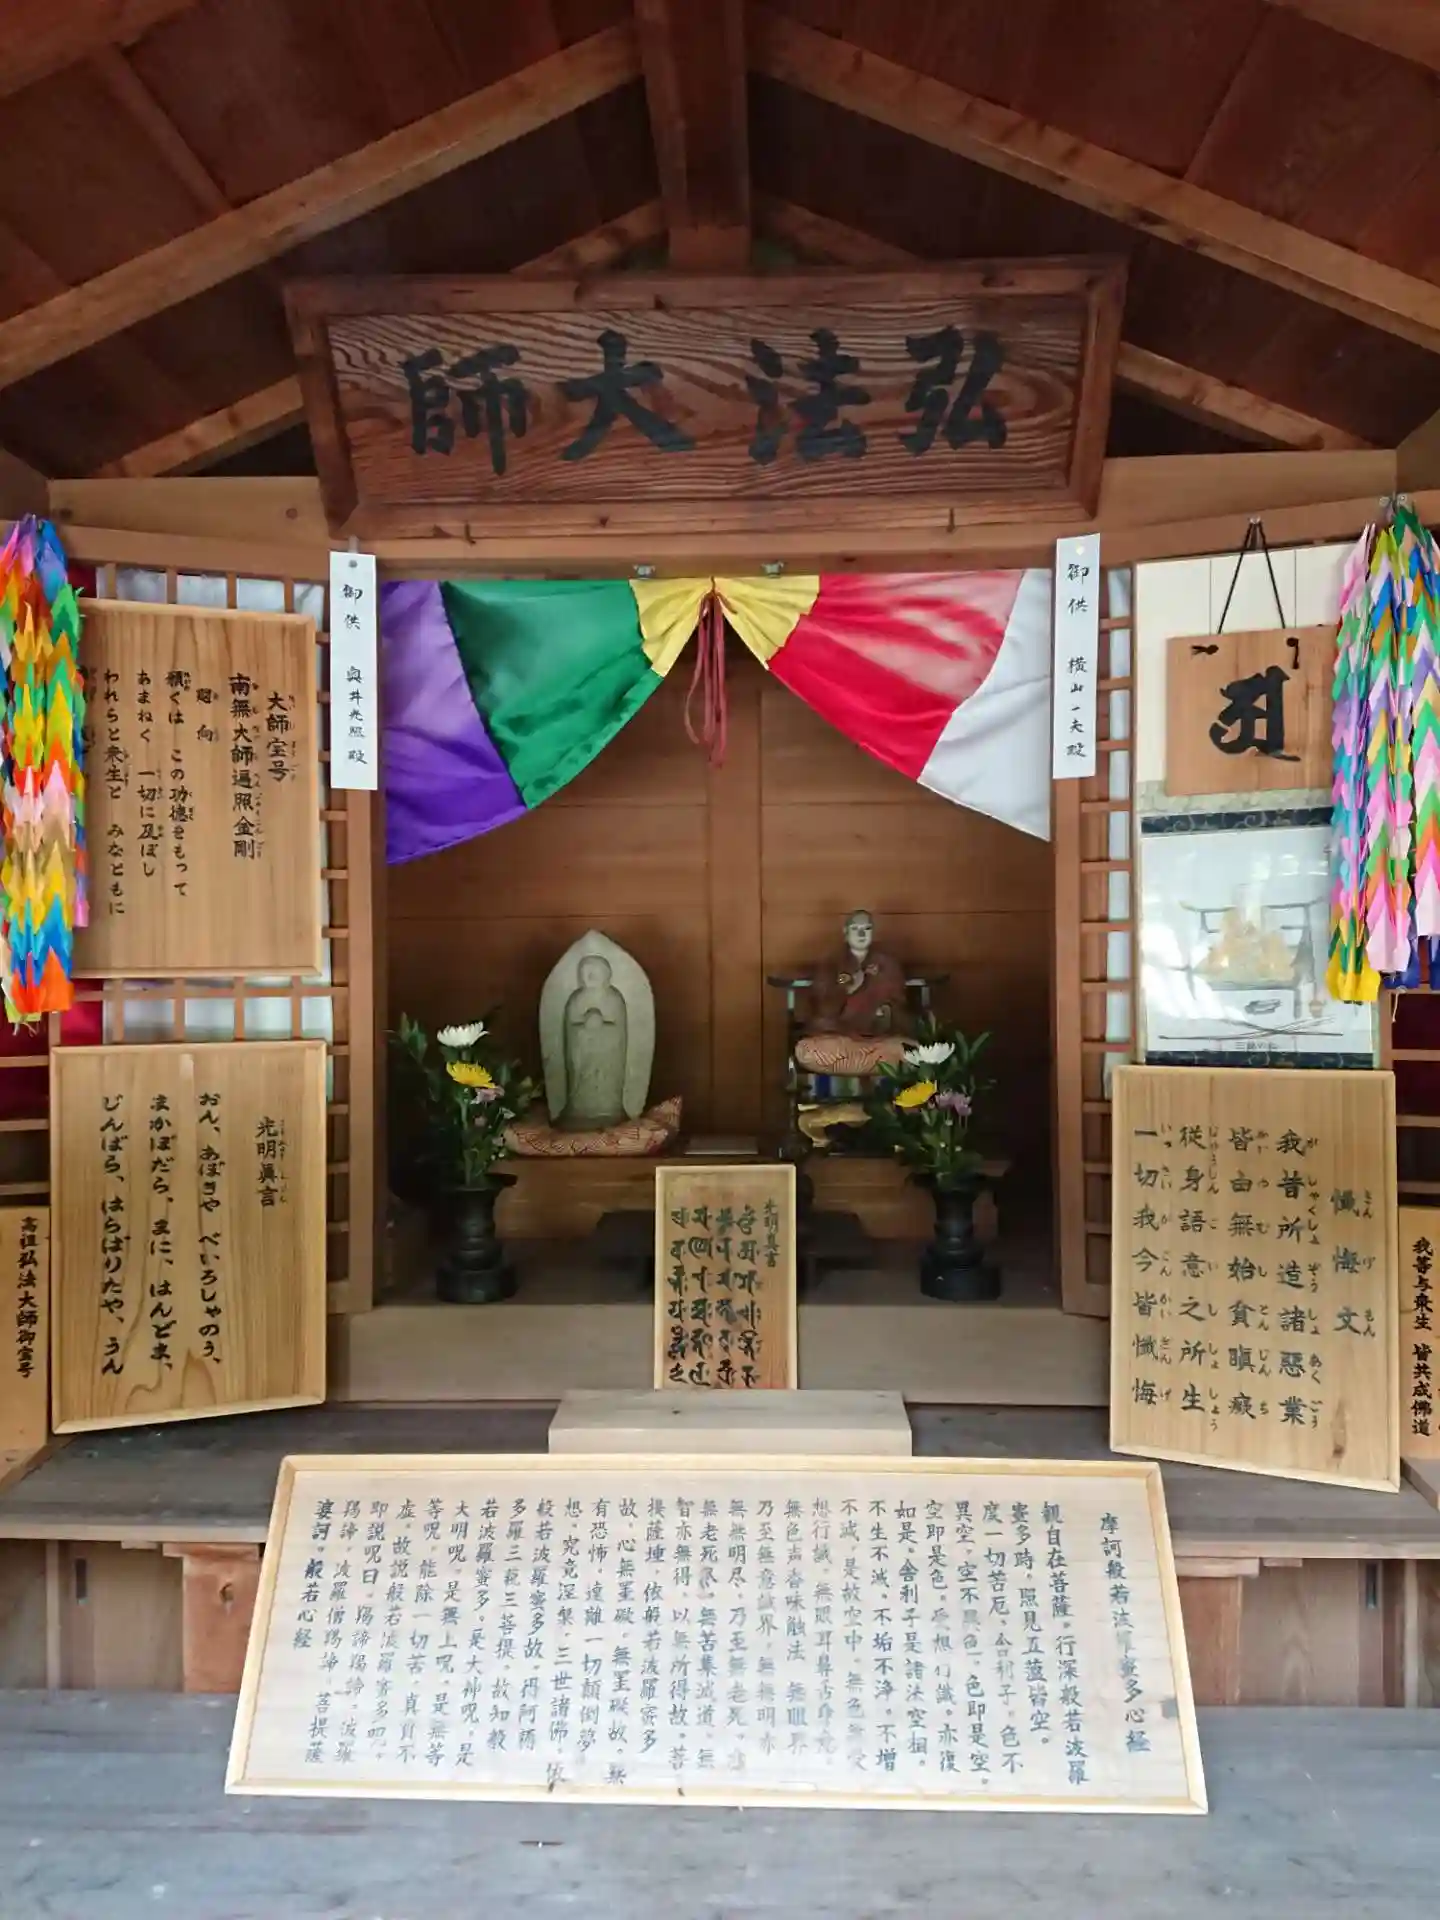 弘法大師
御供 奥井光照殿
御供 横山一夫殿
大師宝号
南無大師遍照金剛
廻向
願くは この功徳をもって
あまねく 一切に及ぼし
われらと衆生と みなともに
光明真言
おん、あぼきや べいろしゃのう、
まかぼだら、まに、はんどま、
じんばら、はらばりたや、うん
高祖弘法大師御宝号
光明真言
懺悔文
我昔所造諸悪業
皆由無始貪瞋癡
従身語意之所生
一切我今皆懺悔
我等与衆生 皆共成佛道
摩訶般若波羅蜜多心経
観自在菩薩。行深般若波羅
蜜多時。照見五蘊皆空。
度一切苦厄。舎利子。色不
異空。空不異色。色即是空。
空即是色。受想行識。亦復
如是。舎利子是諸法空相。
不生不滅。不垢不浄。不増
不減。是故空中。無色無受
想行識。無眼耳鼻舌身意。
無色声香味触法 無眼界
乃至無意識界。無無明亦
無無明尽。乃至無老死。亦
無老死尽。無苦集滅道。無
智亦無得。以無所得故。菩
提薩埵。依般若波羅蜜多
故。心無罣礙。無罣礙故。無
有恐怖。遠離一切顛倒夢
想。究竟涅槃。三世諸佛。依
般若波羅蜜多故。得阿耨
多羅三藐三菩提。故知般
若波羅蜜多。是大神呪。是
大明呪。是無上呪。是無等
等呪。能除一切苦。真実不
虚。故説般若波羅蜜多呪。
即説呪曰。羯諦羯諦。波羅
羯諦。波羅僧羯諦。菩提薩
婆訶。般若心経